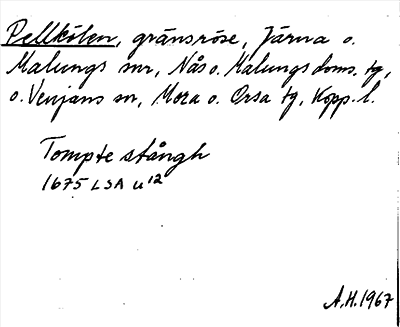 Pellkölen, gränsröse, Järna o.
Malungs snr, Nås o. Malungs doms. tg,
o. Venjans sn, Mora o. Orsa tg, Kopp. l.
Tompte stångh
1675 LSA u 12
A.H. 1967